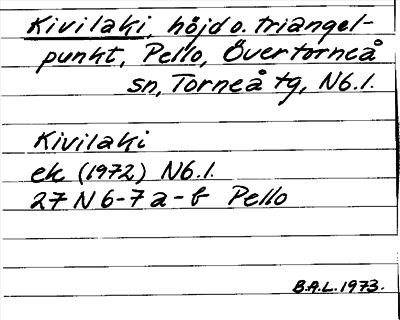 Kivilaki, höjd o. triangel-
punkt, Pello, Övertorneå
sn, Torneå tg, N6.1.
Kivilaki
ek (1972) N6.1.
27 N 6-7 a-b Pello
B.A.L. 1973.